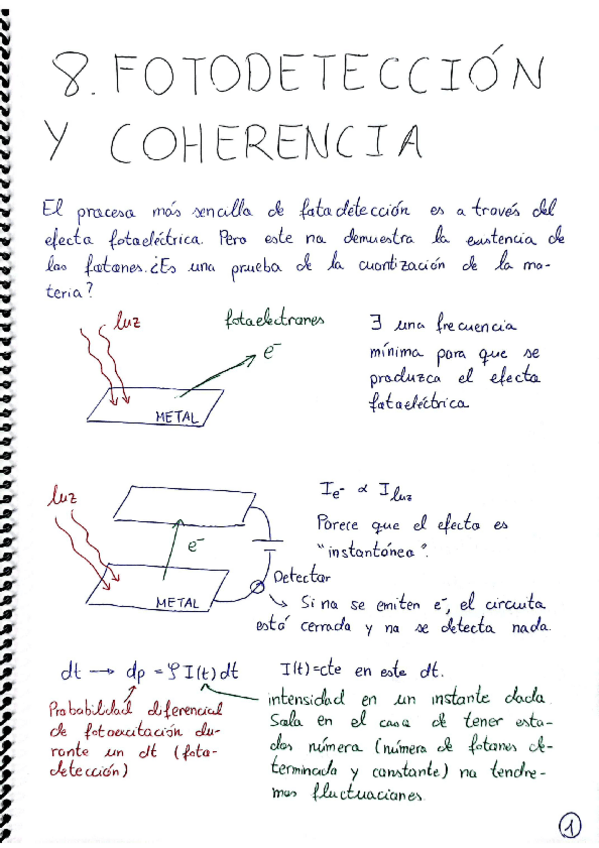 8. FOTODETECCIÓN
Y COHERENCIA
El proceso más sencillo de fotodetección es a través del
efecto fotoeléctrico. Pero este no demuestra la existencia de
los fotones. ¿Es una prueba de la cuantización de la ma-
teria?
luz
fotoelectrones
e⁻
METAL
∃ una frecuencia
mínima para que se
produzca el efecto
fotoeléctrico
luz
e⁻
METAL
Detector
I e⁻ ∝ I luz
Parece que el efecto es
"instantáneo".
Si no se emiten e⁻, el circuito
está cerrado y no se detecta nada.
dt → dp = ζ I(t) dt
I(t)=cte en este dt.
Probabilidad diferencial
de fotoexcitación du-
rante un dt (foto-
detección)
intensidad en un instante dado
Solo en el caso de tener esta-
dos número (número de fotones de-
terminado y constante) no tendre-
mos fluctuaciones
1